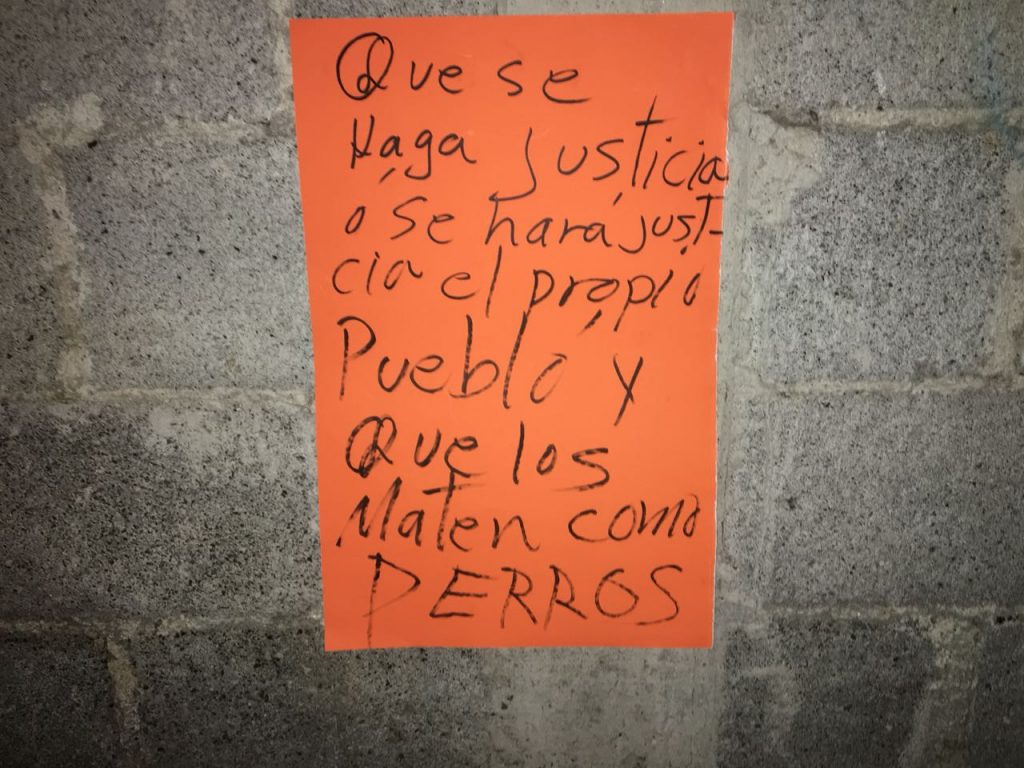 Que se
Haga justicia
o se hará just-
cia el propio
Pueblo y
Que los
Maten como
PERROS